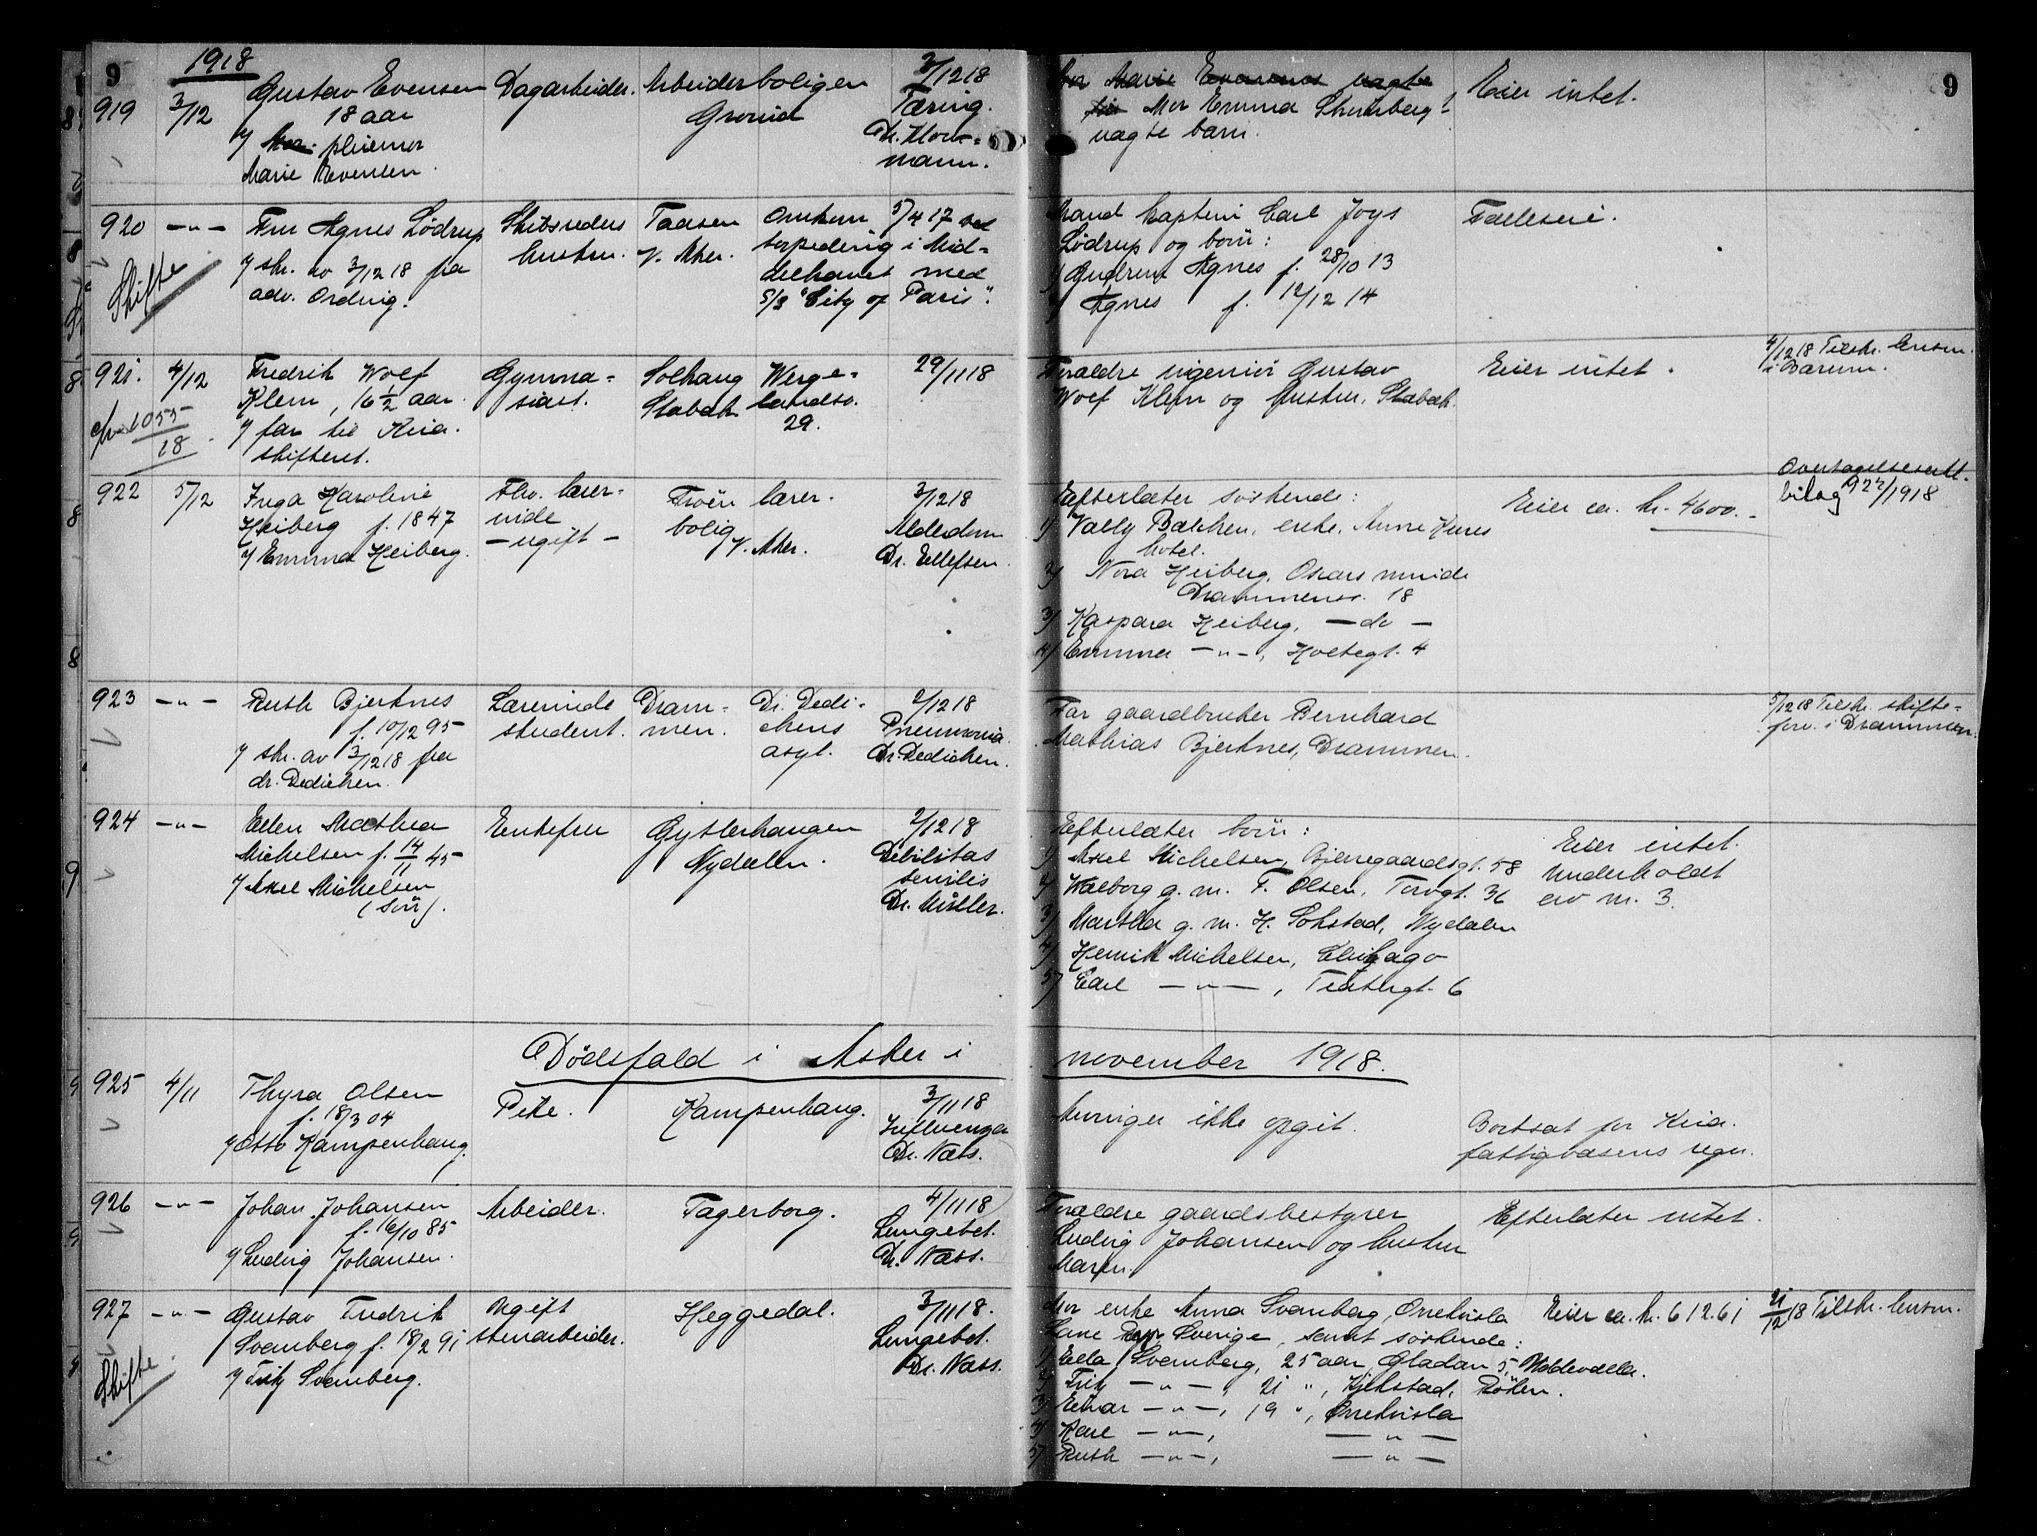 9
1918
919
3/12
Gustav Evensen
18 aar
v/ Mor. pleiemor
Marie Evensen.
Dagarbeider.
Arbeiderboligen
Grorud
3/12 18
Tæring.
Dr. Mor Marie Evensens uægte
Mor Emma
uægte barn.
Eier intet.
9
920
— " —
Skifte
Fru Agnes Lödrup
v/ skr. av 3/12 18 fra
adv. Ording.
Skibsreders
hustru.
Taasen
V. Aker.
Omkom 5/4 17 ved
torpedering i Mid=
delhavet med
S/S "City of Paris".
Mand kaptein Carl Joys
Lödrup og börn:
1/ Gudrun Agnes f. 28/10 13
2/ Agnes f. 12/12 14
Fælleseie.
921.
4/12
1055
18
Fredrik Wolf
Klem, 16 1/2 aar.
v/ far til Kria.
skifteret.
Gymna=
siast.
Solhaug
Stabæk
Werge=
landsv.
29.
29/11 18
Foræeldre ingeniör Gustav
Wolf Klem og hustru, Stabæk.
Eier intet.
4/12 18 Tilskr. lensm.
i Bærum.
922
5/12
Inga Karoline
Heiberg f. 1847
v/ Emma Heiberg.
Fhv. lærer=
inde
— ugift —
Froën lærer=
bolig V. Aker.
3/12 18
Alderdom
Dr. Ellefsen.
Efterlater söskende:
1/ Vally Balchen, enke, Anne Kures
hotel.
2/ Nora Heiberg, Oscars minde
Drammensv. 18
3/ Kaspara Heiberg, — do —
4/ Emma — " —, Holtegt. 4
Eier ca. kr. 4600.-
Overtagelseserkl.
bilag 922/1918
923
— " —
Ruth Bjerknes
f. 10/12 95
v/ skr. av 3/12 18 fra
dr. Dedichen.
Lærerinde
student.
Dram=
men.
Dr. Dedi=
chens
asyl.
2/12 18
Pneumonia
Dr. Dedichen.
Far gaardbruker Bernhard
Mathias Bjerknes, Drammen.
5/12 18 Tilskr. skifte=
forv. i Drammen.
924
— " —
Ellen Mathea
Michelsen f. 14/11 45
v/ Axel Michelsen
(Sön).
Enkefru
Gjetlerhaugen
Nydalen.
2/12 18
Debilitas
senilis
Dr. Müller.
Efterlater börn:
1/ Axel Michelsen, Bjerregaardsgt. 58
2/ Valborg g. m. F. Olsen, Torvgt. 36
3/ Martha g. m. H. Sokstad, Nydalen
4/ Henrik Michelsen, Chicago
5/ Carl — " —, Teatergt. 6
Eier intet.
Underholdt
av nr. 3.
Dödsfald i Asker i november 1918.
925
4/11
Thyra Olsen
f. 18/3 04
v/ Otto Kampenhaug.
Pike.
Kampenhaug.
3/11 18
Influenza
Dr. Næss.
Arvinger ikke opgit.
Bortsat for Kria.
fattigvæsens regn.
926
— " —
Johan Johansen
f. 16/10 85
v/ Ludvig Johansen.
Arbeider.
Fagerborg.
4/11 18
Lungebet.
Dr. Næss.
Forældre gaardsbestyrer
Ludvig Johansen og hustru
Maren.
Efterlater intet.
927
— " —
Skifte
Gustav Fredrik
Svanberg f. 18/2 91
v/ Fritz Svanberg.
Ugift
stenarbeider.
Heggedal.
3/11 18.
Lungebet.
Dr. Næss.
Mor enke Anna Svanberg, Örrekvisla
Lane Sverige, samt söskende:
1/ Ella Svanberg, 25 aar, Gladan 5, Uddevalla.
2/ Fritz — " —, 21 ", Kjekstad, Röken.
3/ Einar — " —, 19 ", Örrekvisla
4/ Karl — " —, — " —
5/ Ruth — " —, — " —
Eier ca. kr. 612.61
21/12 18 Tilskr. lensm.